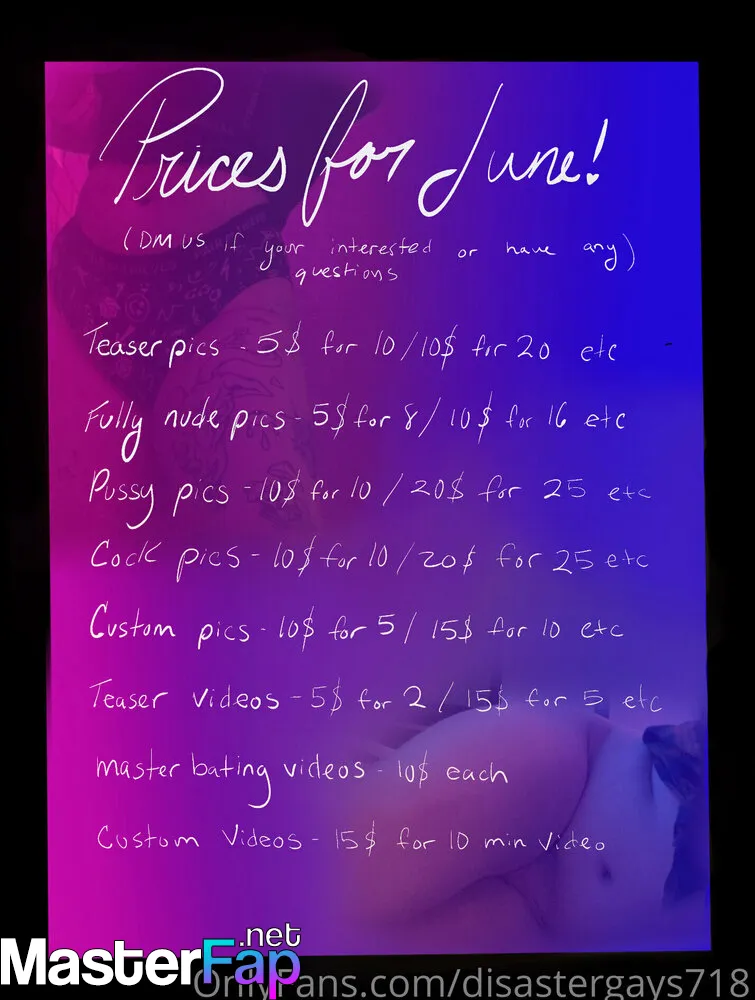 Prices for June!
(DM us if your interested or have any)
questions
Teaser pics - 5$ for 10/10$ for 20 etc
Fully nude pics - 5$ for 8/10$ for 16 etc
Pussy pics - 10$ for 10/20$ for 25 etc
Cock pics - 10$ for 10/20$ for 25 etc
Custom pics - 10$ for 5/15$ for 10 etc
Teaser videos - 5$ for 2/15$ for 5 etc
master bating videos - 10$ each
Custom Videos - 15$ for 10 min video
MasterFap.net
OnlyFans.com/disastergays718